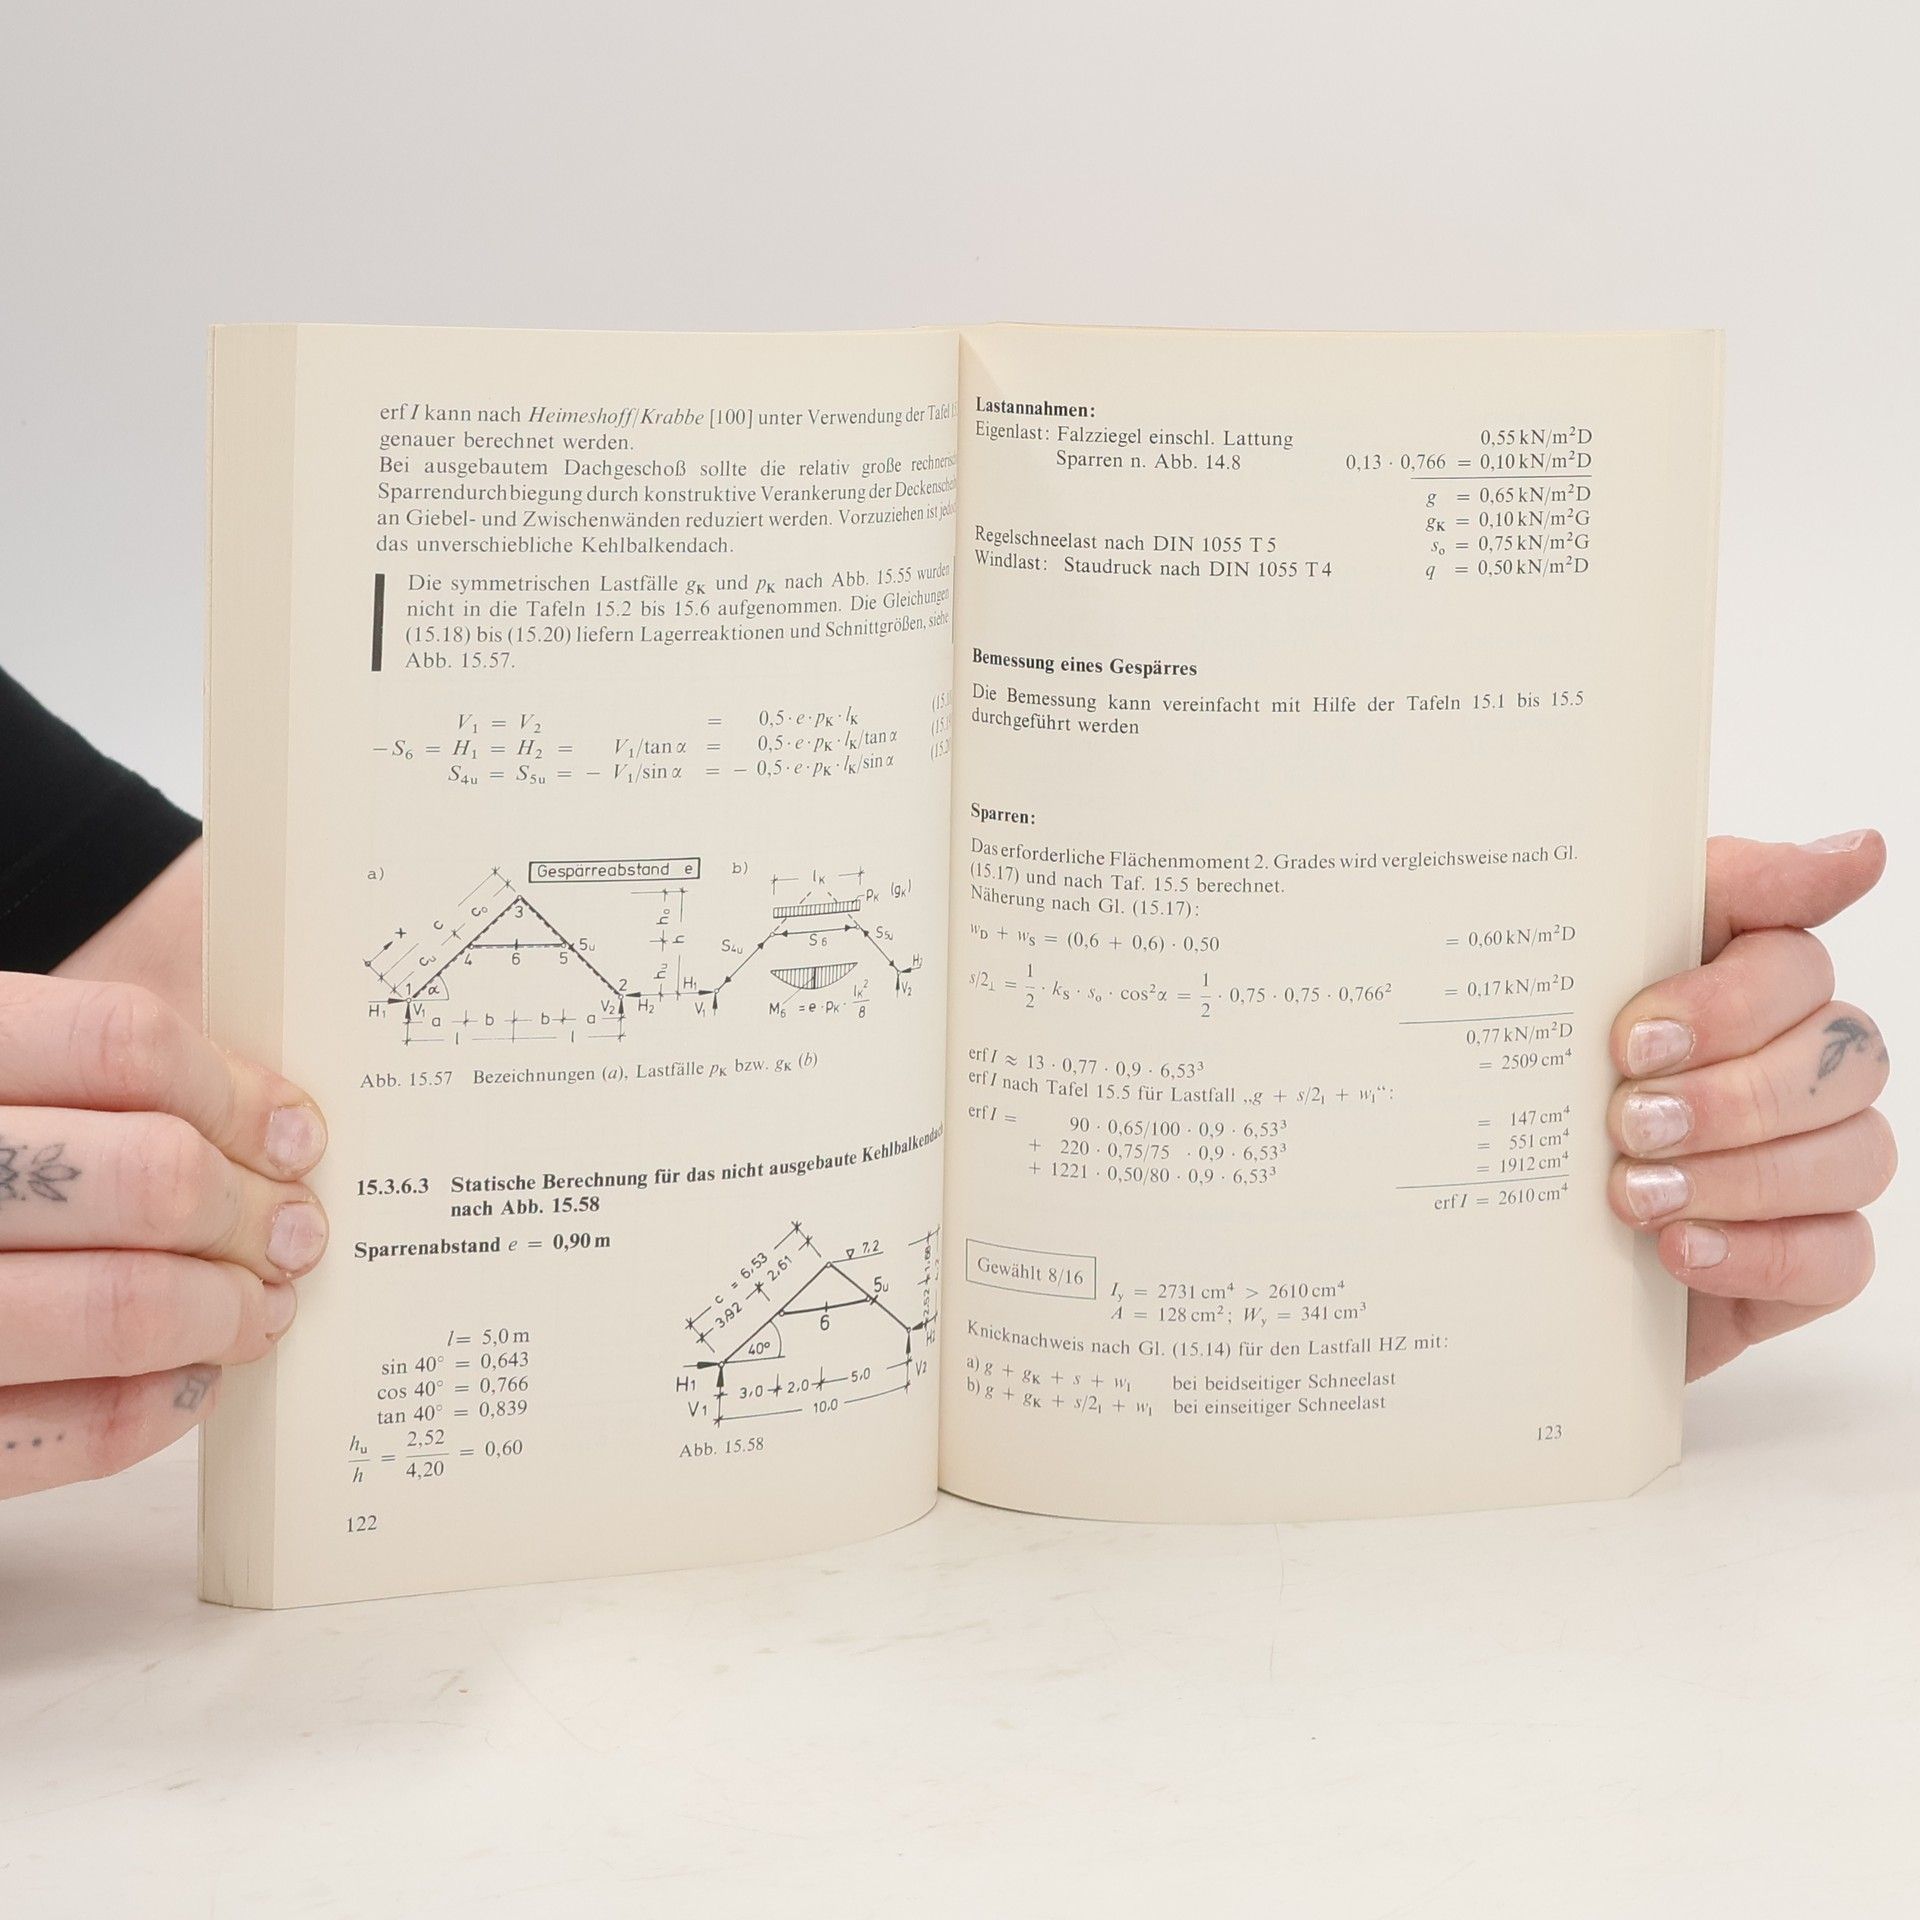 erf I kann nach Heimeshoff/Krabbe [100] unter Verwendung der Tafel
genauer berechnet werden.
Bei ausgebautem Dachgeschoß sollte die relativ große
Sparrendurchbiegung durch konstruktive Verankerung der
an Giebel- und Zwischenwänden reduziert werden. Vorzuziehen ist
das unverschiebliche Kehlbalkendach.
Die symmetrischen Lastfälle gK und pK nach Abb. 15.55 wurden
nicht in die Tafeln 15.2 bis 15.6 aufgenommen. Die Gleichungen
(15.18) bis (15.20) liefern Lagerreaktionen und Schnittgrößen, siehe
Abb. 15.57.
V₁ = V₂ = 0,5·e·pK·lK
−S₆ = H₁ = H₂ = V₁/tan α = 0,5·e·pK·lK/tan α
S₄u = S₅u = − V₁/sin α = − 0,5·e·pK·lK/sin α
a) Gespärreabstand e b)
c c₀ cu x
1 2 3 4 5 5u 6 α
h₀ h hu
H₁ V₁ V₂ H₂
a b b a
l l
lK
pK (gK)
S₄u S₆ S₅u
H₁ V₁ H₂ V₂
M₆ = e·pK· lK²/8
Abb. 15.57 Bezeichnungen (a), Lastfälle pK bzw. gK (b)
15.3.6.3 Statische Berechnung für das nicht ausgebaute Kehlbalkendach
nach Abb. 15.58
Sparrenabstand e = 0,90 m
l = 5,0 m
sin 40° = 0,643
cos 40° = 0,766
tan 40° = 0,839
hu/h = 2,52/4,20 = 0,60
c = 6,53
3,92 2,61
7,2
5u
6
40°
2,52 1,68
H₁ V₁ H₂ V₂
3,0 2,0 5,0
10,0
Abb. 15.58
122
Lastannahmen:
Eigenlast: Falzziegel einschl. Lattung 0,55 kN/m²D
Sparren n. Abb. 14.8 0,13 · 0,766 = 0,10 kN/m²D
g = 0,65 kN/m²D
gK = 0,10 kN/m²G
Regelschneelast nach DIN 1055 T 5 s₀ = 0,75 kN/m²G
Windlast: Staudruck nach DIN 1055 T 4 q = 0,50 kN/m²D
Bemessung eines Gespärres
Die Bemessung kann vereinfacht mit Hilfe der Tafeln 15.1 bis 15.5
durchgeführt werden
Sparren:
Das erforderliche Flächenmoment 2. Grades wird vergleichsweise nach Gl.
(15.17) und nach Taf. 15.5 berechnet.
Näherung nach Gl. (15.17):
wD + wS = (0,6 + 0,6) · 0,50 = 0,60 kN/m²D
s/2⊥ = 1/2 · kS · s₀ · cos²α = 1/2 · 0,75 · 0,75 · 0,766² = 0,17 kN/m²D
0,77 kN/m²D
erf I ≈ 13 · 0,77 · 0,9 · 6,53³ = 2509 cm⁴
erf I nach Tafel 15.5 für Lastfall „g + s/2l + wl“:
erf I = 90 · 0,65/100 · 0,9 · 6,53³ = 147 cm⁴
+ 220 · 0,75/75 · 0,9 · 6,53³ = 551 cm⁴
+ 1221 · 0,50/80 · 0,9 · 6,53³ = 1912 cm⁴
erf I = 2610 cm⁴
Gewählt 8/16
Iy = 2731 cm⁴ > 2610 cm⁴
A = 128 cm²; Wy = 341 cm³
Knicknachweis nach Gl. (15.14) für den Lastfall HZ mit:
a) g + gK + s + wl bei beidseitiger Schneelast
b) g + gK + s/2l + wl bei einseitiger Schneelast
123